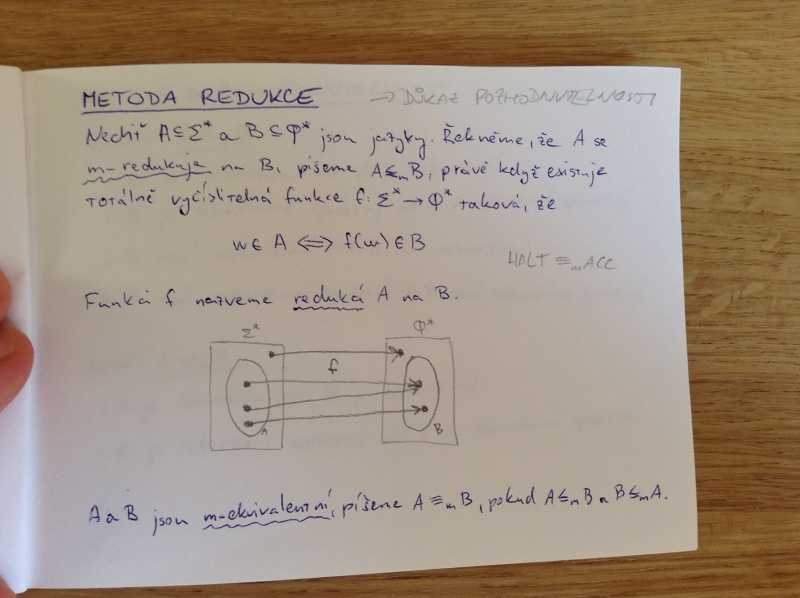 METODA REDUKCE → DŮKAZ ROZHODNUTELNOSTI
Nechť A ⊆ Σ* a B ⊆ Φ* jsou jazyky. Řekněme, že A se
m-redukuje na B, píšeme A ≤ₘ B, právě když existuje
totálně vyčíslitelná funkce f: Σ* → Φ* taková, že
w ∈ A ⟺ f(w) ∈ B
HALT ≡ₘ ACC
Funkci f nazveme redukcí A na B.
Σ* Φ*
f
A B
A a B jsou m-ekvivalentní, píšeme A ≡ₘ B, pokud A ≤ₘ B a B ≤ₘ A.